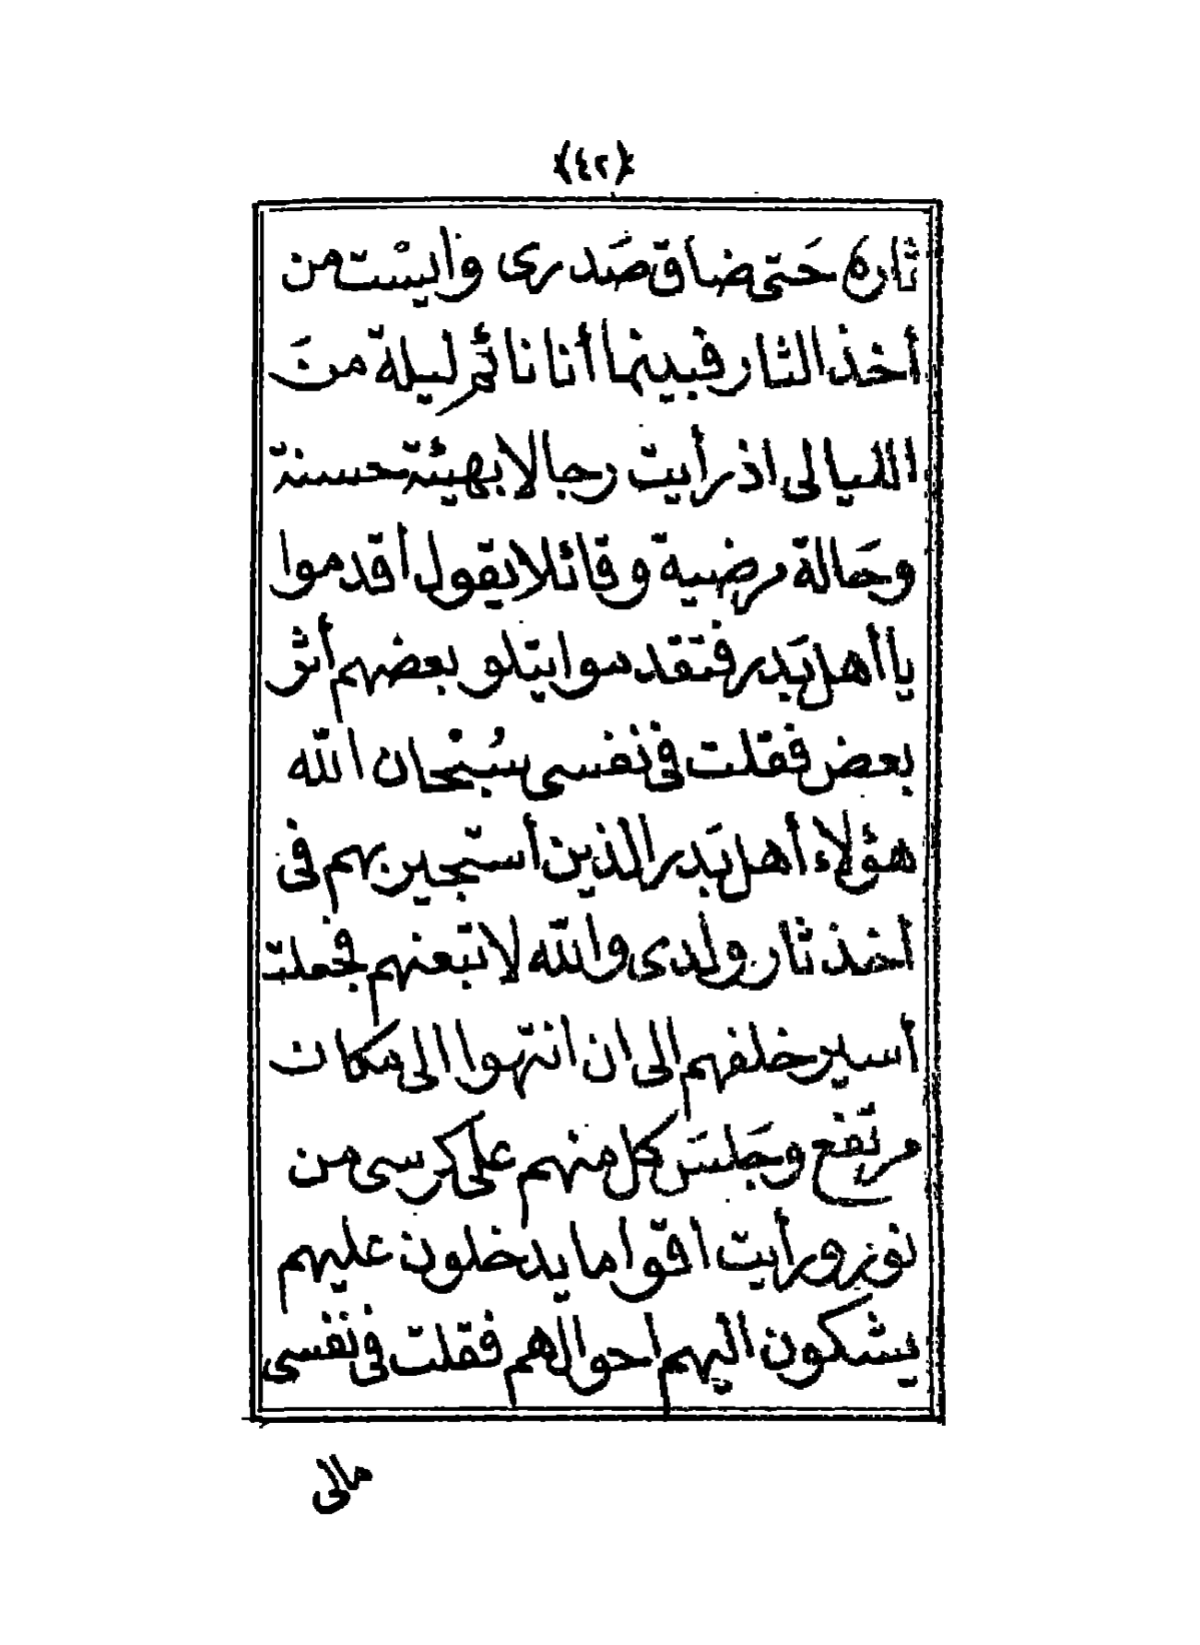 ﴿٤٢﴾
ثاره حَتى ضاق صَدرى وأيسْت من
أخذ الثار فبينما أنا نائم ليلة من
الليالى اذ رأيت رجالا بهيئة حسنة
وحَالة مرضية وقائلا يقول أقدموا
يا أهل بَدر فتقدموا يتلو بعضهم أثر
بعض فقلت فى نفسى سُبْحان الله
هؤلاء أهل بَدر الذين أستجير بهم فى
أخذ ثار ولدى والله لاتبعنهم فجعلت
أسير خلفهم الى ان انتهوا الى مكان
مرتفع وجَلسَ كل منهم على كرسى من
نور ورأيت اقواما يدخلون عليهم
يشكون اليهم احوالهم فقلت فى نفسى
مالى